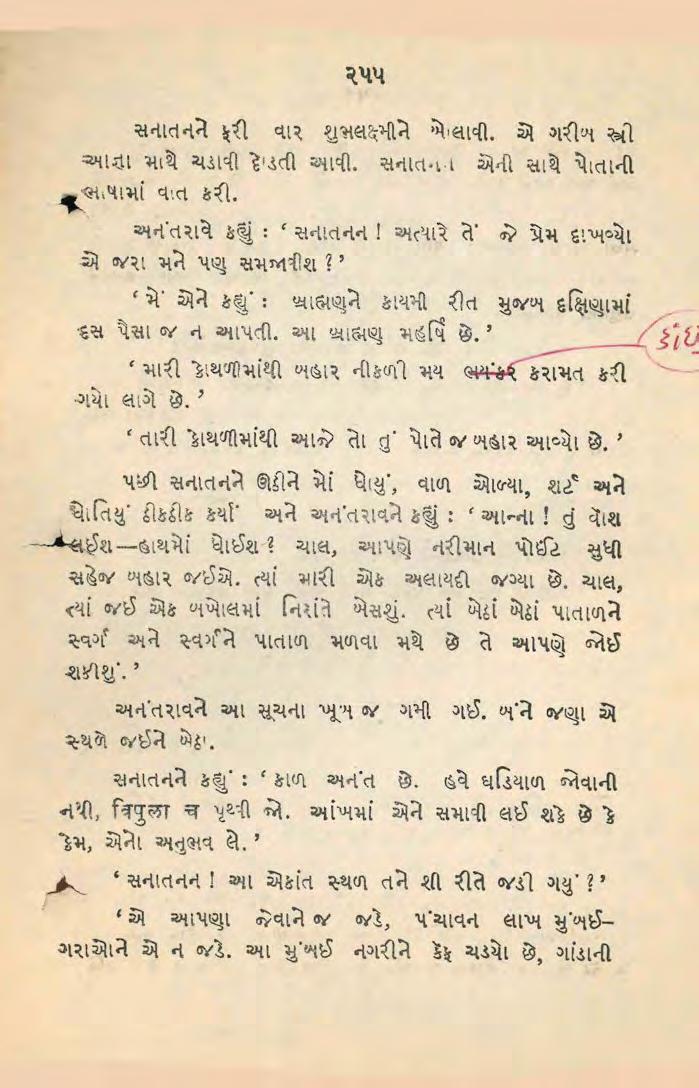 ૨૫૫
સનાતનને ફરી વાર શુભલક્ષ્મીને બોલાવી. એ ગરીબ સ્ત્રી
આજ્ઞા માથે ચડાવી દોડતી આવી. સનાતનને એની સાથે પોતાની
ભાષામાં વાત કરી.
અનંતરાવે કહ્યું : ‘ સનાતનન ! અત્યારે તેં જે પ્રેમ દાખવ્યો
એ જરા મને પણ સમજાવીશ ? ’
‘ મેં એને કહ્યું : બ્રાહ્મણને કાયમી રીત મુજબ દક્ષિણામાં
દસ પૈસા જ ન આપતી. આ બ્રાહ્મણ મહર્ષિ છે. ’
કાંઇ
‘ મારી કોથળીમાંથી બહાર નીકળી મય ભયંકર કરામત કરી
ગયો લાગે છે. ’
‘ તારી કોથળીમાંથી આજે તો તું પોતે જ બહાર આવ્યો છે. ’
પછી સનાતનને ઊઠીને મોં ધોયું, વાળ ઓળ્યા, શર્ટ અને
ધોતિયું ઠીકઠીક કર્યાં અને અનંતરાવને કહ્યું : ‘ આન્ના ! તું વોશ
લઈશ—હાથમોં ધોઈશ ? ચાલ, આપણે નરીમાન પોઈંટ સુધી
સહેજ બહાર જઈએ. ત્યાં મારી એક અલાયદી જગ્યા છે. ચાલ,
ત્યાં જઈ એક બખોલમાં નિરાંતે બેસશું. ત્યાં બેઠાં બેઠાં પાતાળને
સ્વર્ગ અને સ્વર્ગને પાતાળ મળવા મથે છે તે આપણે જોઈ
શકીશું. ’
અનંતરાવને આ સૂચના ખૂબ જ ગમી ગઈ. બંને જણા એ
સ્થળે જઈને બેઠા.
સનાતનને કહ્યું : ‘ કાળ અનંત છે. હવે ઘડિયાળ જોવાની
નથી, त्रिपुला च પૃથ્વી જો. આંખમાં એને સમાવી લઈ શકે છે કે
કેમ, એનો અનુભવ લે. ’
‘ સનાતનન ! આ એકાંત સ્થળ તને શી રીતે જડી ગયું ? ’
‘ એ આપણા જેવાને જ જડે, પંચાવન લાખ મુંબઈ–
ગરાઓને એ ન જડે. આ મુંબઈ નગરીને કેફ ચડ્યો છે, ગાંડાની